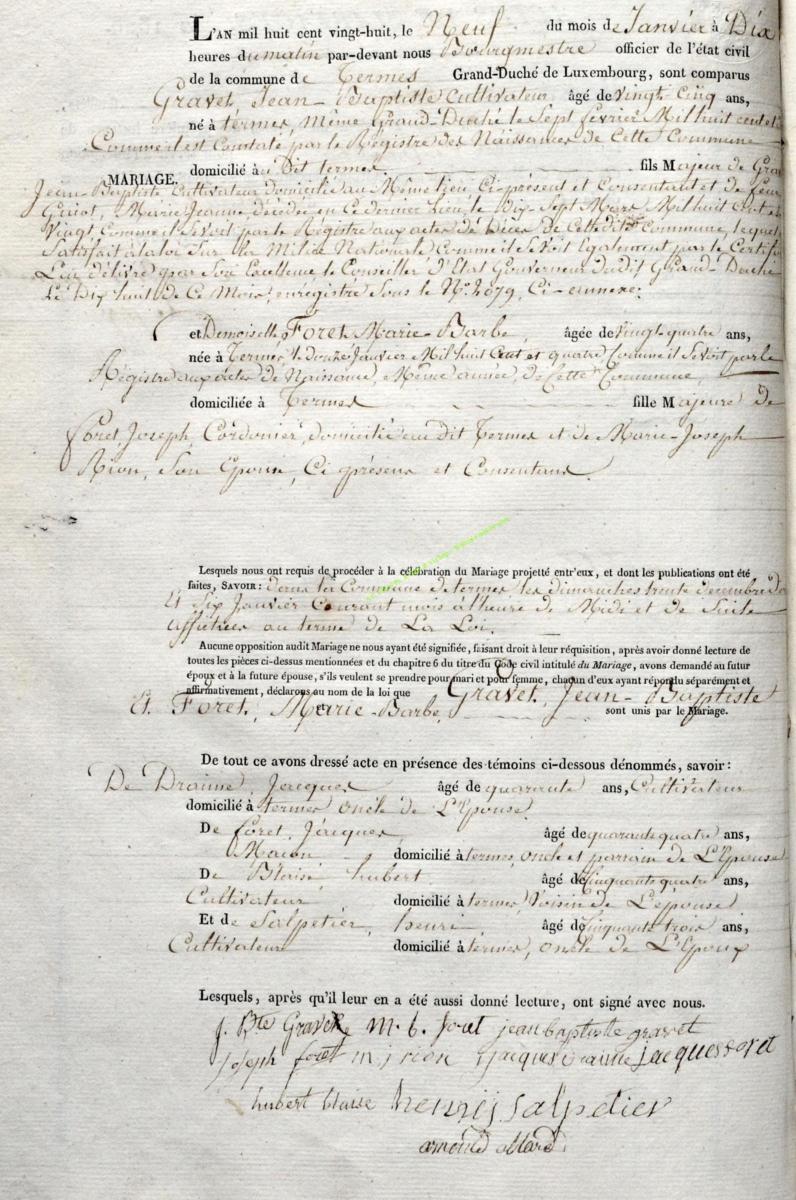 L'AN mil huit cent vingt-huit, le Neuf du mois de Janvier à Dix
heures du matin par-devant nous Bourgmestre officier de l'état civil
de la commune de Termes Grand-Duché de Luxembourg, sont comparus
Gravet, Jean-Baptiste Cultivateur âgé de vingt cinq ans,
né à termes, Même Grand-Duché le Sept février Mil huit cent et
Comme il est Constaté par le Registre des Naissances de Cette Commune
domicilié au Dit termes fils Majeur de
MARIAGE.
Jean-Baptiste Cultivateur domicilié au Même lieu Ci-présent et Consentant et de feue
Guiot, Marie Jeanne, décédée en Ce dernier Lieu le Dix Sept Mars Mil huit Cent
Vingt Comme il Se voit par le Régistre aux actes de Décès de Cette dite Commune, lequel
Satisfait à la loi Sur la Milice Nationale Comme il Se voit Egalement par le
délivré par Son Excellence le Conseiller d'Etat Gouverneur du dit Grand-Duché
Le Dix huit de Ce Mois, enrégistré Sous le No. 2079, Ci-annexé.
et Demoiselle Foret, Marie-Barbe, âgée de vingt-quatre ans,
née à Termes le douze Janvier Mil huit Cent et quatre Comme il Se voit par le
Régistre aux actes de Naissance, Même année, de Cette Commune,
domiciliée à Termes fille Majeure de
Foret, Joseph, Cordonier, domicilié au dit Termes et de Marie-Joseph
Rion, Son Epouse, Ci présens et Consentans.
Lesquels nous ont requis de procéder à la célébration du Mariage projetté entr'eux, et dont les publications ont été
faites, SAVOIR: dans la Commune de termes, les dimanches trente decembre
Et Six Janvier Courant mois à l'heure de Midi et de Suite
affichées au terme de La Loi.
Aucune opposition audit Mariage ne nous ayant été signifiée, faisant droit à leur réquisition, après avoir donné lecture de
toutes les pièces ci-dessus mentionnées et du chapitre 6 du titre du Code civil intitulé du Mariage, avons demandé au futur
époux et à la future épouse, s'ils veulent se prendre pour mari et pour femme, chacun d'eux ayant répondu séparément et
affirmativement, déclarons au nom de la loi que Gravet, Jean-Baptiste
et Et Foret, Marie-Barbe, sont unis par le Mariage.
De tout ce avons dressé acte en présence des témoins ci-dessous dénommés, savoir:
De Draime, Jacques âgé de quarante ans, Cultivateur
domicilié à termes oncle de L'Epouse.
De foret, Jacques âgé de quarante quatre ans,
Maçon domicilié à termes, oncle et parrain de L'Epouse
De Blaise hubert âgé de Cinquante quatre ans,
Cultivateur domicilié à termes, Voisin de L'épouse
Et de Salpetier, henri, âgé de Cinquante trois ans,
Cultivateur domicilié à termes, oncle de L'Epoux
Lesquels, après qu'il leur en a été aussi donné lecture, ont signé avec nous.
j. Bte Gravet M. b. foret jean baptiste gravet
joseph foret m j rion jacques draime jacques foret
hubert blaise henri salpetier
arnould allard